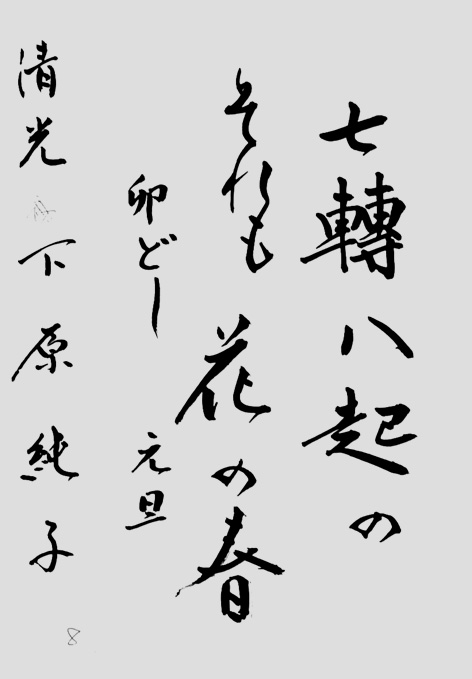 七轉八起の
それも花の春
卯どし 元旦
清光 下原純子
8